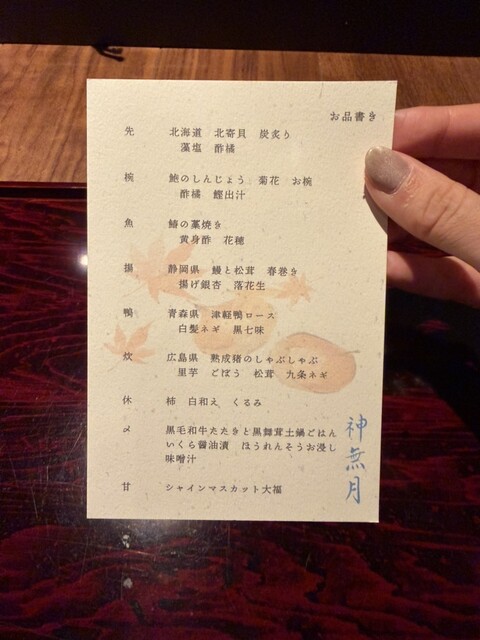 お品書き
先 北海道 北寄貝 炭炙り
藻塩 酢橘
椀 鮑のしんじょう 菊花 お椀
酢橘 鰹出汁
魚 鰆の藁焼き
黄身酢 花穂
揚 静岡県 鰻と松茸 春巻き
揚げ銀杏 落花生
鴨 青森県 津軽鴨ロース
白髪ネギ 黒七味
炊 広島県 熟成猪のしゃぶしゃぶ
里芋 ごぼう 松茸 九条ネギ
休 柿 白和え くるみ
〆 黒毛和牛たたきと黒舞茸土鍋ごはん
いくら醤油漬 ほうれんそうお浸し
味噌汁
甘 シャインマスカット大福
神無月